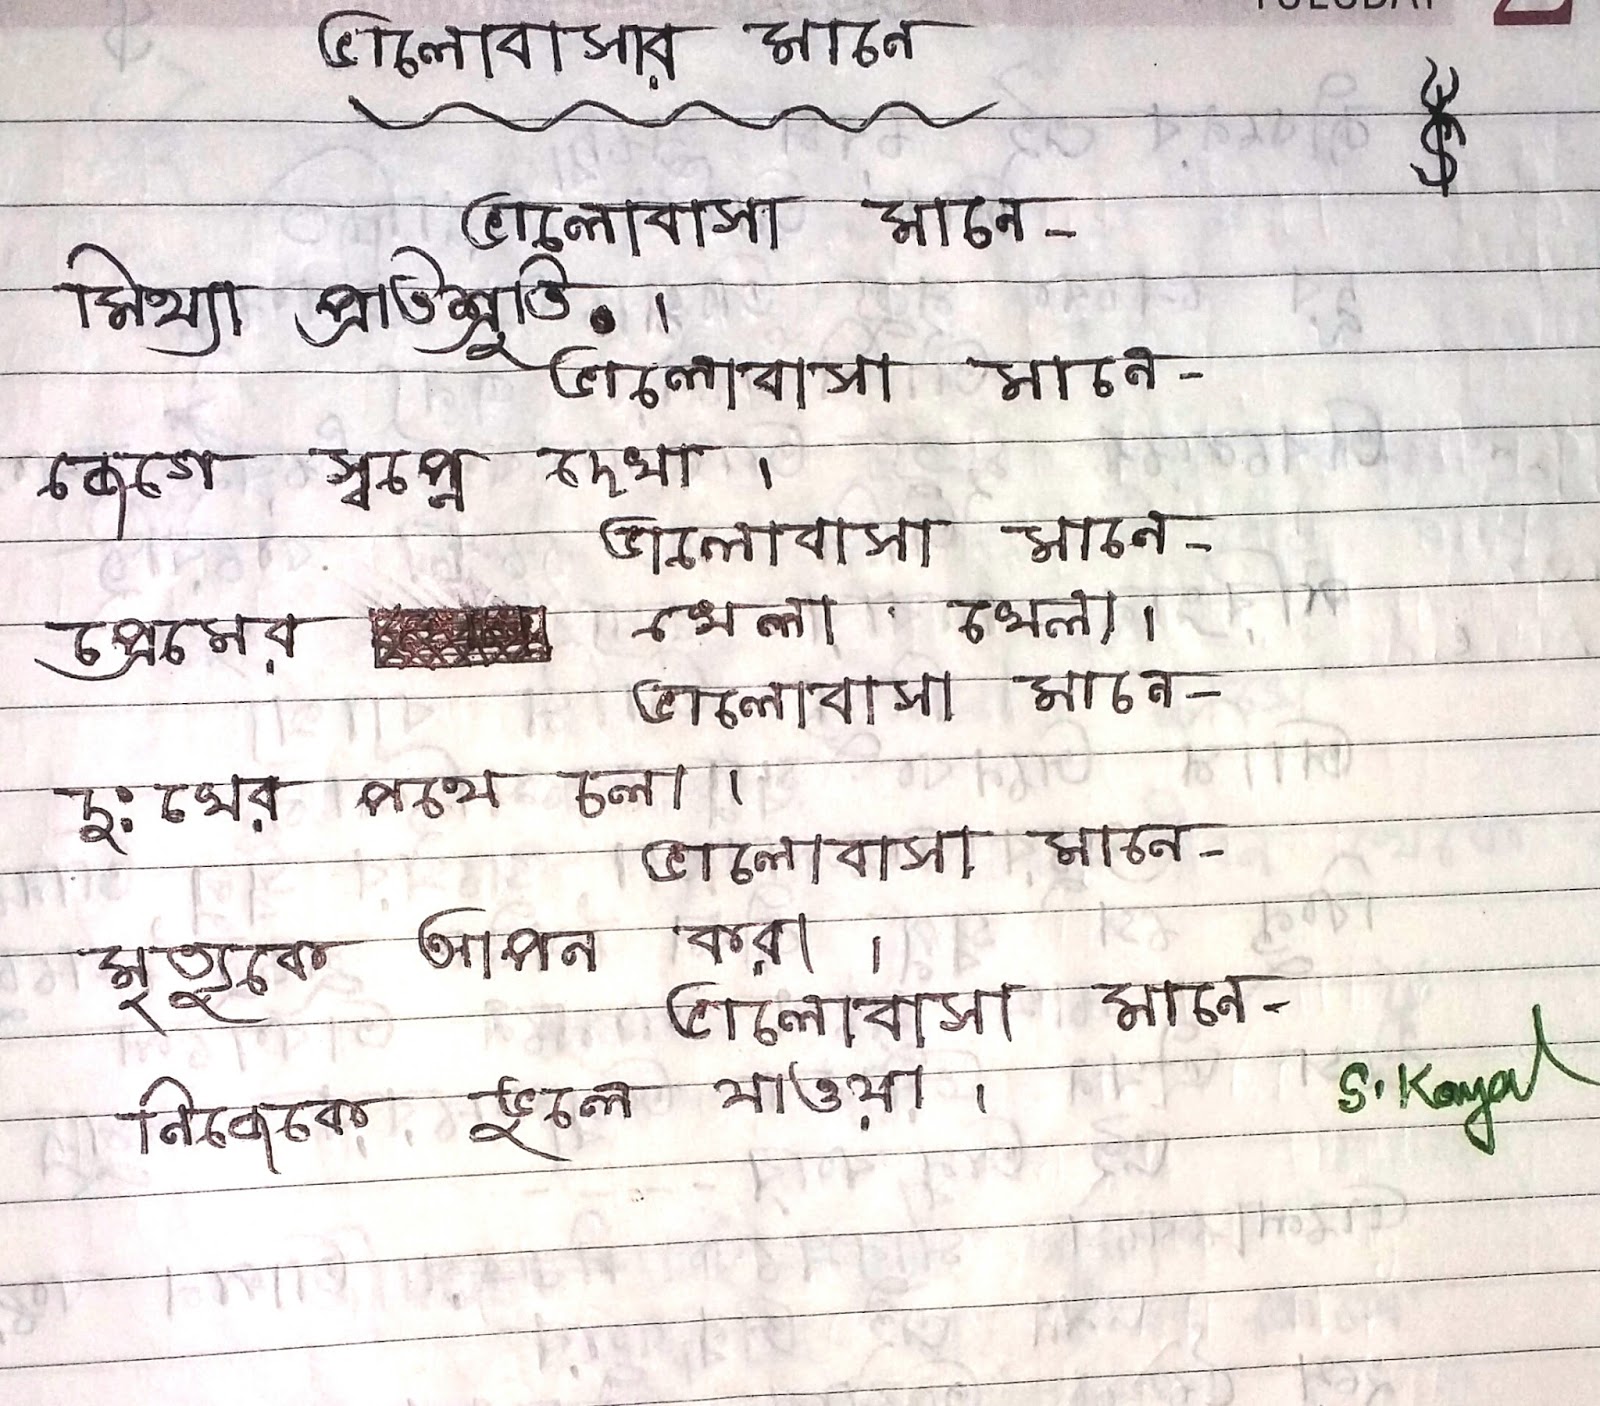 TUESDAY 2
ভালোবাসার মানে
ভালোবাসা মানে-
মিথ্যা প্রতিশ্রুতি।
ভালোবাসা মানে-
জেগে স্বপ্নে দেখা।
ভালোবাসা মানে-
প্রেমের খেলা খেলা।
ভালোবাসা মানে-
দুঃখের পথে চলা।
ভালোবাসা মানে-
মৃত্যুকে আপন করা।
ভালোবাসা মানে-
নিজেকে ভুলে যাওয়া।
S. Kayal